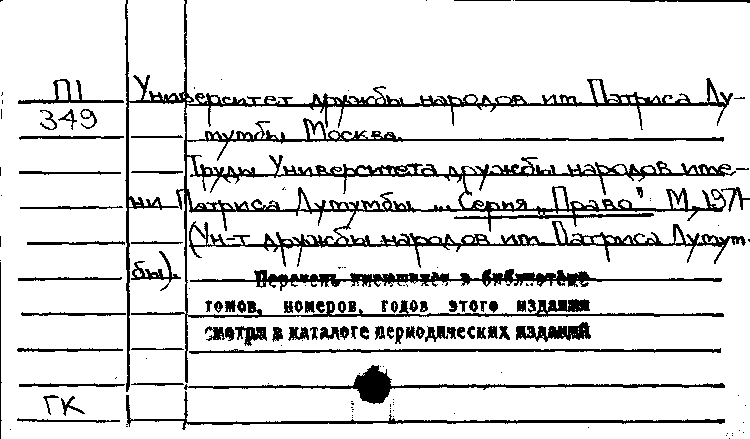 П1
349
Университет дружбы народов им. Патриса Лу-
мумбы. Москва.
Труды Университета дружбы народов име-
ни Патриса Лумумбы ... Серия „Право" М., 1971-
(Ун-т дружбы народов им. Патриса Лумум-
бы).
Перечень имеющихся в библиотеке
томов, номеров, годов этого издания
смотри в каталоге периодических изданий
ГК